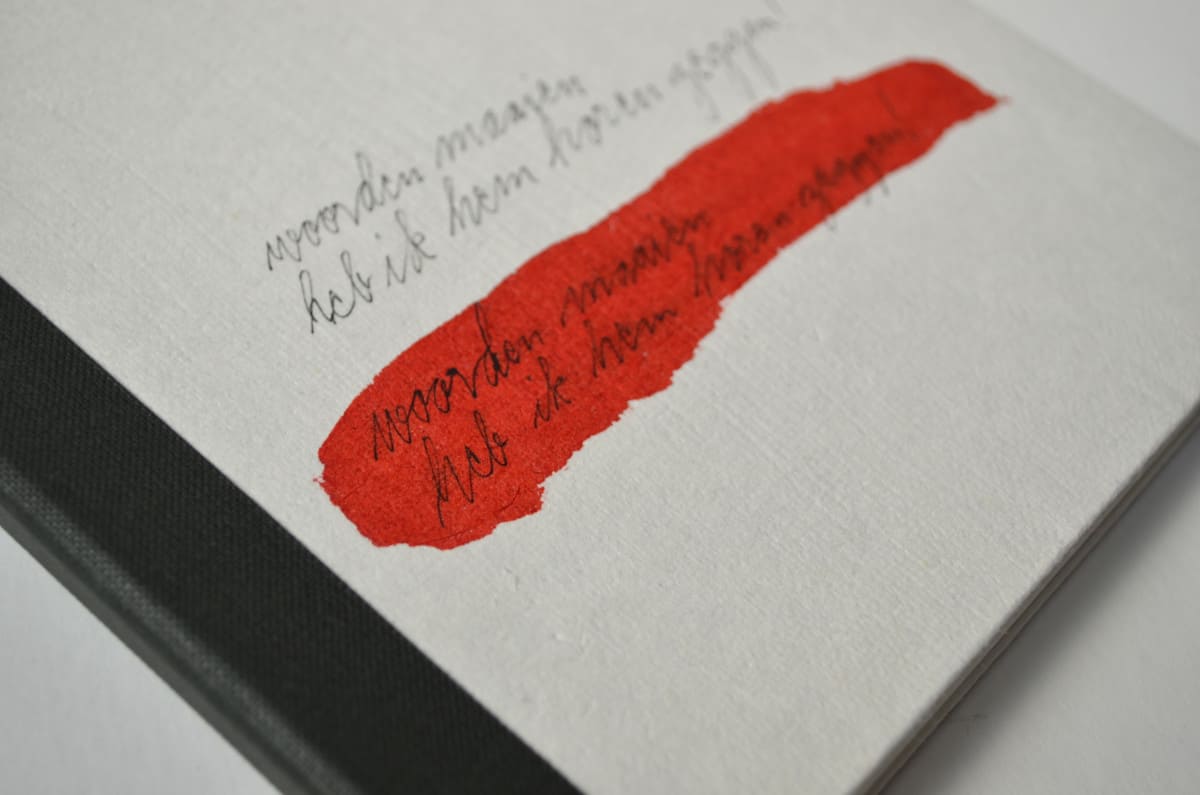 woorden maaien
heb ik hem horen zeggen!
woorden maaien
heb ik hem horen zeggen!